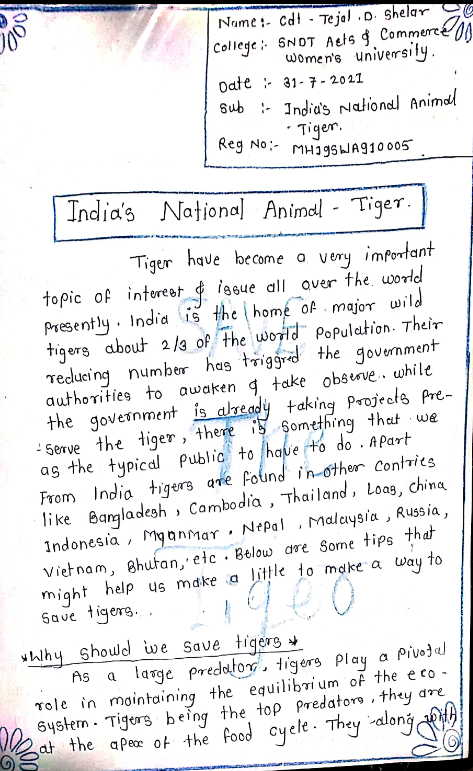 Name :- Cdt - Tejal .D. Shelar
College :- SNDT Arts & Commerce
Women's University.
Date :- 31-7-2021
Sub :- India's National Animal
- Tiger.
Reg No:- MH19SWA910005
India's National Animal - Tiger.
Tiger have become a very important
topic of interest & issue all over the world
Presently. India is the home of major wild
tigers about 2/3 of the world Population. Their
reducing number has triggred the government
authorities to awaken & take observe. while
the government is already taking Projects Pre-
-serve the tiger, there is something that we
as the typical Public to have to do. Apart
From India tigers are found in other contries
like Bangladesh, Cambodia, Thailand, Loas, China
Indonesia, Myanmar, Nepal, Malaysia, Russia,
Vietnam, Bhutan, etc. Below are some tips that
might help us make a little to make a way to
save tigers.
SAVE
The
Tiger
*Why should we save tigers*
As a large predator, tigers play a pivotal
role in maintaining the equilibrium of the eco-
system. Tigers being the top predators, they are
at the apex of the food cycle. They along with